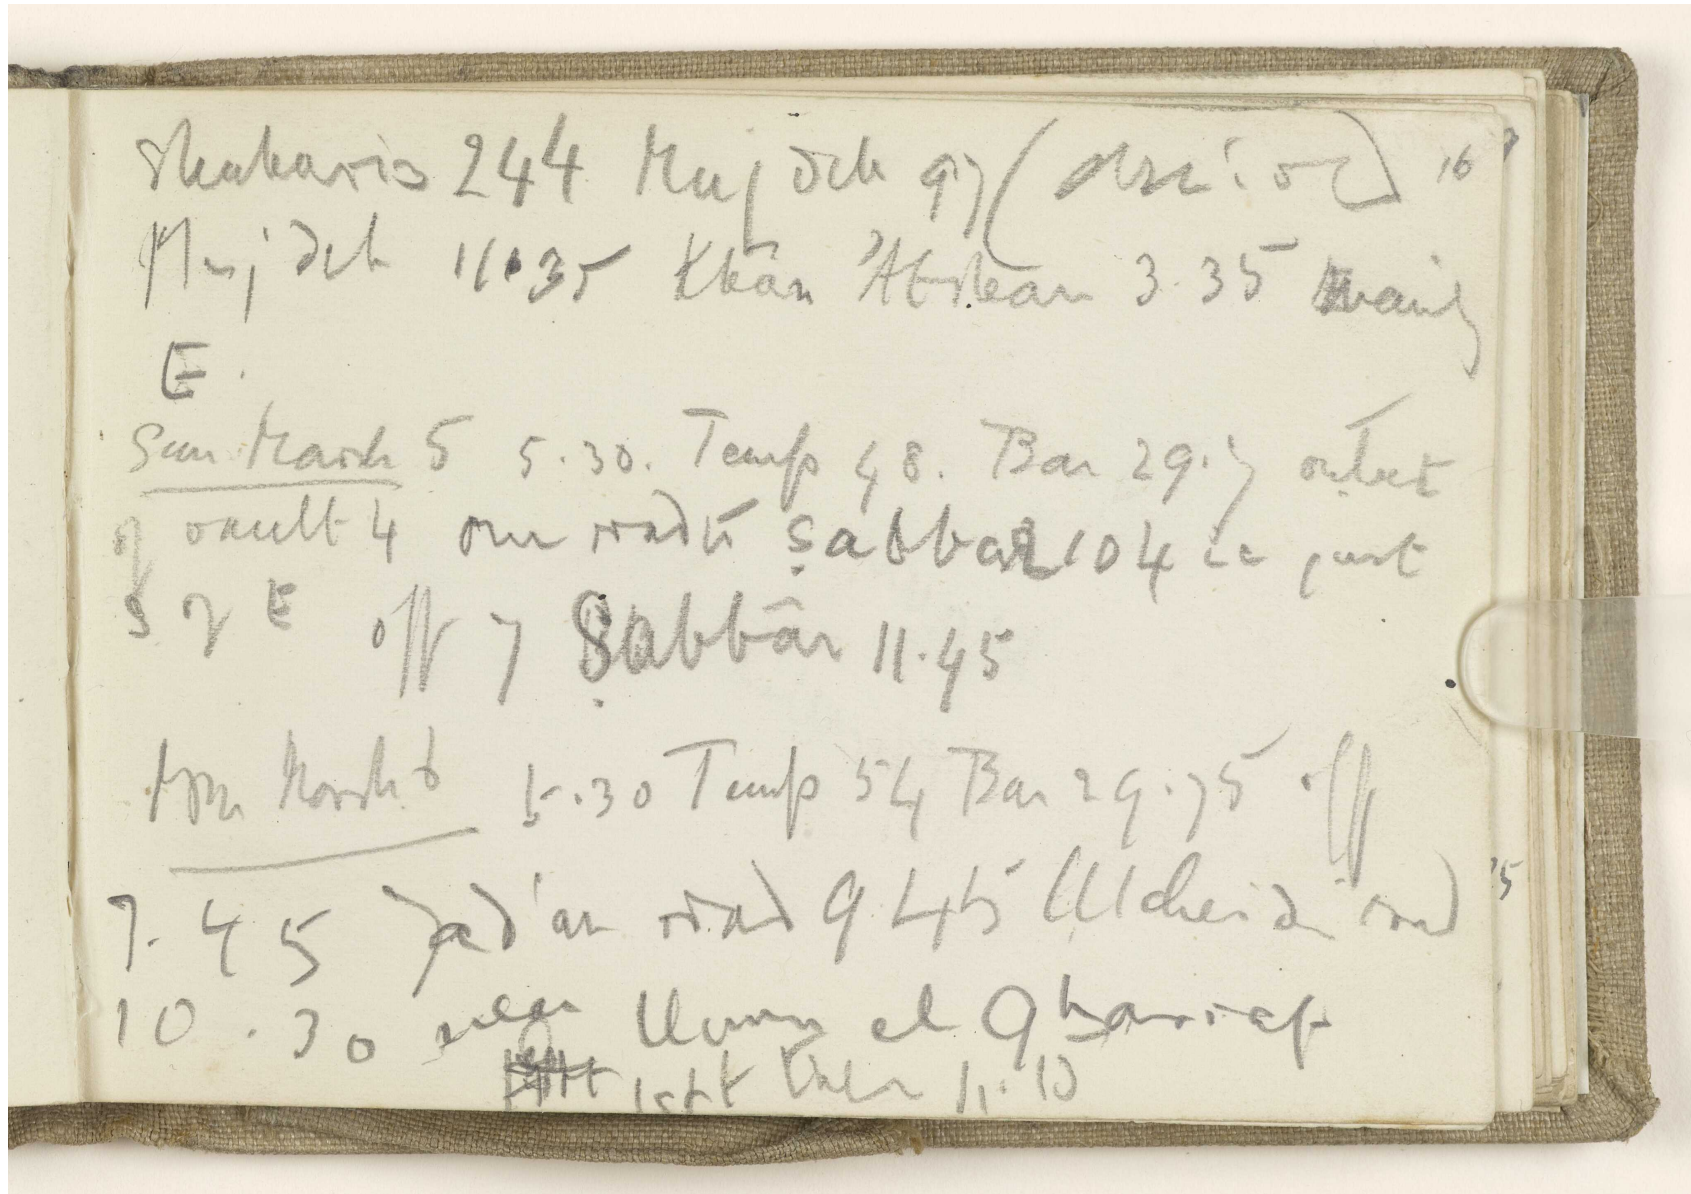 244 Mujdeh 97
Mujdeh 11.35 Khân 'Atshan 3.35 mainly
E.
Sun March 5 5.30. Temp 48. Bar 29.7 outlet
of vault 4 our road to Ṣabbar 104 ie just
S of E off 7 Ṣabbâr 11.45
Mon March 6 5.30 Temp 54 Bar 29.75 off
7.45 Jad'an road 9 45 Ukheidir road
10.30 near Umm el Gharraf
left there 11.10